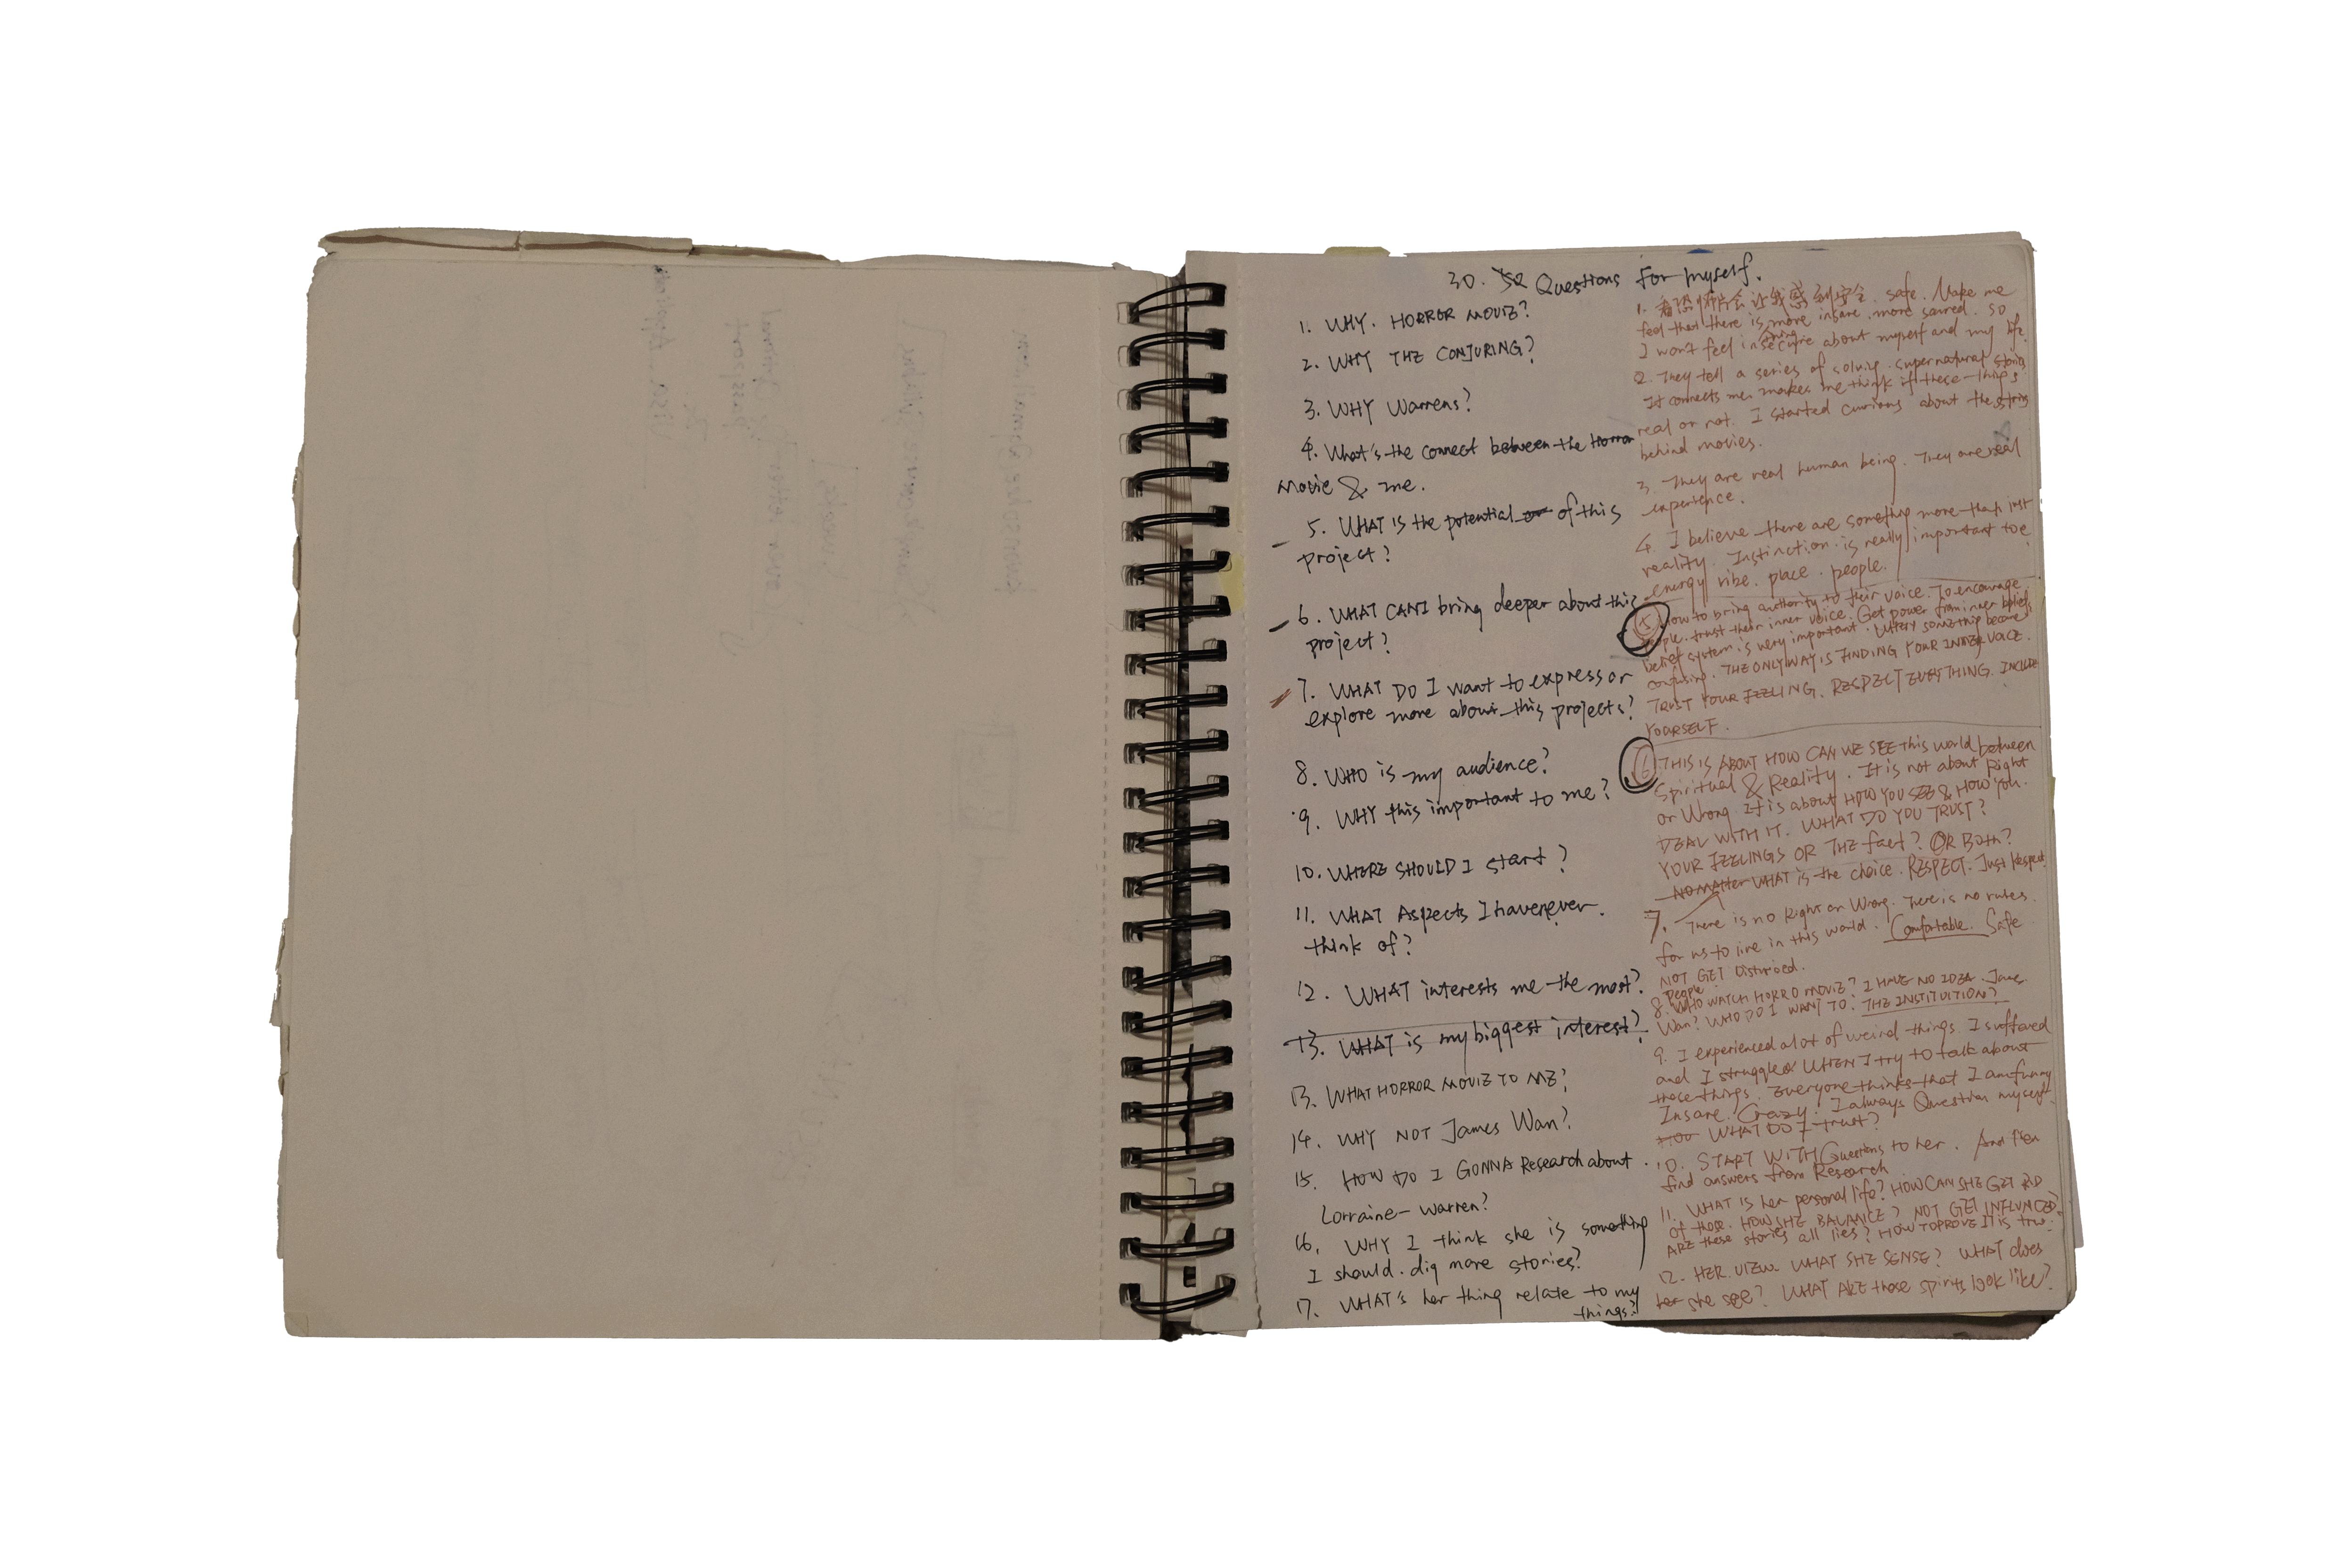 30. Questions For myself.
1. WHY. HORROR MOVIE?
2. WHY THE CONJURING?
3. WHY Warrens?
4. What's the connect between the Horror
Movie & me.
5. WHAT IS the potential of this
project?
6. WHAT CAN I bring deeper about this
project?
7. WHAT DO I want to express or
explore more about this projects?
8. WHO is my audience?
9. WHY this important to me?
10. WHERE SHOULD I start?
11. WHAT Aspects I havenever
think of?
12. WHAT interests me the most?
13. WHAT is my biggest interest?
13. WHAT HORROR MOVIE TO ME?
14. WHY NOT James Wan?
15. HOW DO I GONNA Research about
Lorraine-Warren?
16. WHY I think she is something
I should. dig more stories?
17. WHAT's her thing relate to my
things?
1. 看恐怖片会让我感到安全. safe. Make me
feel that there is more insane. more scared. so
thing
I won't feel insecure about myself and my life.
2. They tell a series of solving. supernatural stories
It connects me. makes me think if these things
real or not. I started curious about the stories
behind movies.
3. They are real human being. They are real
experience.
4. I believe there are something more than just
reality. Instinction is really important to
energy vibe. place. people.
5. How to bring authority to their voice. To encourage
people. trust their inner voice. Get power from inner beliefs
belief system is very important. When something became
confusing. THE ONLY WAY IS FINDING YOUR INNER VOICE.
TRUST YOUR FEELING. RESPECT EVERYTHING. INCLUDE
YOURSELF.
6 THIS IS ABOUT HOW CAN WE SEE this world between
Spiritual & Reality. It is not about Right
or Wrong It is about HOW YOU SEE & HOW YOU.
DEAL WITH IT. WHAT DO YOU TRUST?
YOUR FEELINGS OR THE fact? OR Both?
No Matter WHAT is the choice. RESPECT. Just Respect.
7. There is no Right or Wrong. There is no rules.
for us to live in this world. Comfortable. Safe
NOT GET Disturbed.
people
8. WHO WATCH HORRO MOVIE? I HAVE NO IDEA. James
Wan? WHO DO I WANT TO? THE INSTITUITION?
9. I experienced a lot of weird things. I suffered
and I struggled WHEN I try to talk about
those things. Everyone thinks that I am funny
Insane. Crazy. I always Question myself.
WHAT DO I trust?
10. START WITH Questions to her. And then
find answers from Research
11. WHAT IS her personal life? HOW CAN SHE GET RID
of those. HOW SHE BALANCE? NOT GET INFLUNCED?
ARE these stories all lies? HOW TO PROVE IT is true.
12. HER VIEW. WHAT SHE SENSE? WHAT does
her she see? WHAT ARE those spirits look like?